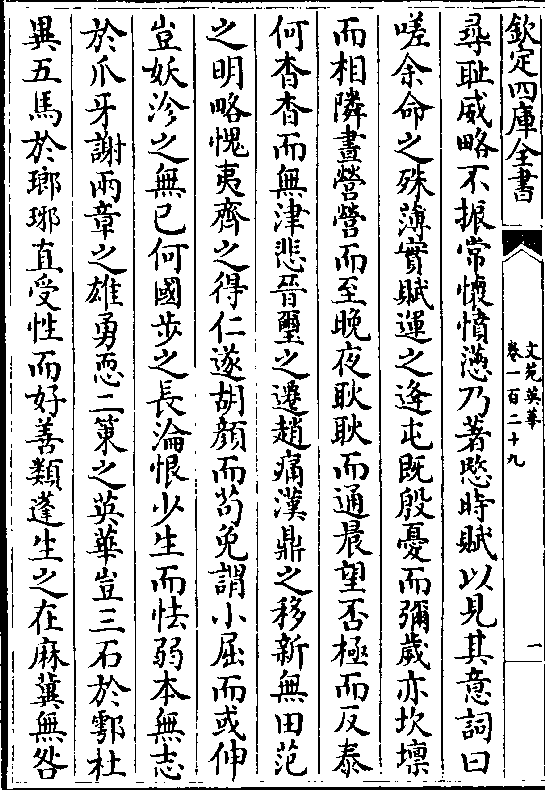 欽定四庫全書
文苑英華
卷一百二十九
一
尋恥威略不振常懷憤懣乃著愍時賦以見其意詞曰
嗟余命之殊薄實賦運之逢屯既殷憂而彌歲亦坎壈
而相隣晝營營而至晚夜耿耿而通晨望否極而反泰
何杳杳而無津悲晉璽之遷趙痛漢鼎之移新無田范
之明略愧夷齊之得仁遂胡顔而苟免謂小屈而或伸
豈妖沴之無已何國步之長淪恨少生而怯弱本無志
於爪牙謝兩章之雄勇恧二䇿之英華豈三石於鄠杜
異五馬於瑯琊直受性而好善類蓬生之在麻冀無咎